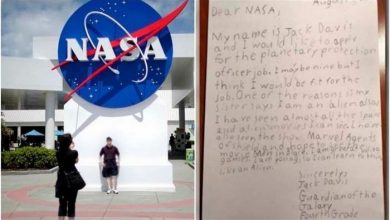 NASA
August
Dear NASA,
My name is Jack Davis
and I would like to apply
for the planetary protection
officer job. I may be nine but I
think I would be fit for the
job. One of the reasons is my
sister says I am an alien also
I have seen almost all the space
and alien movies I can see. I have
also seen the show Marvel Agents
of Shield and hope to see the
movie Men in Black. I am great at video
games. I am young, so I can learn to think
like an Alien.
Sincerely,
Jack Davis
Guardian of the
Galaxy
Fourth Grade